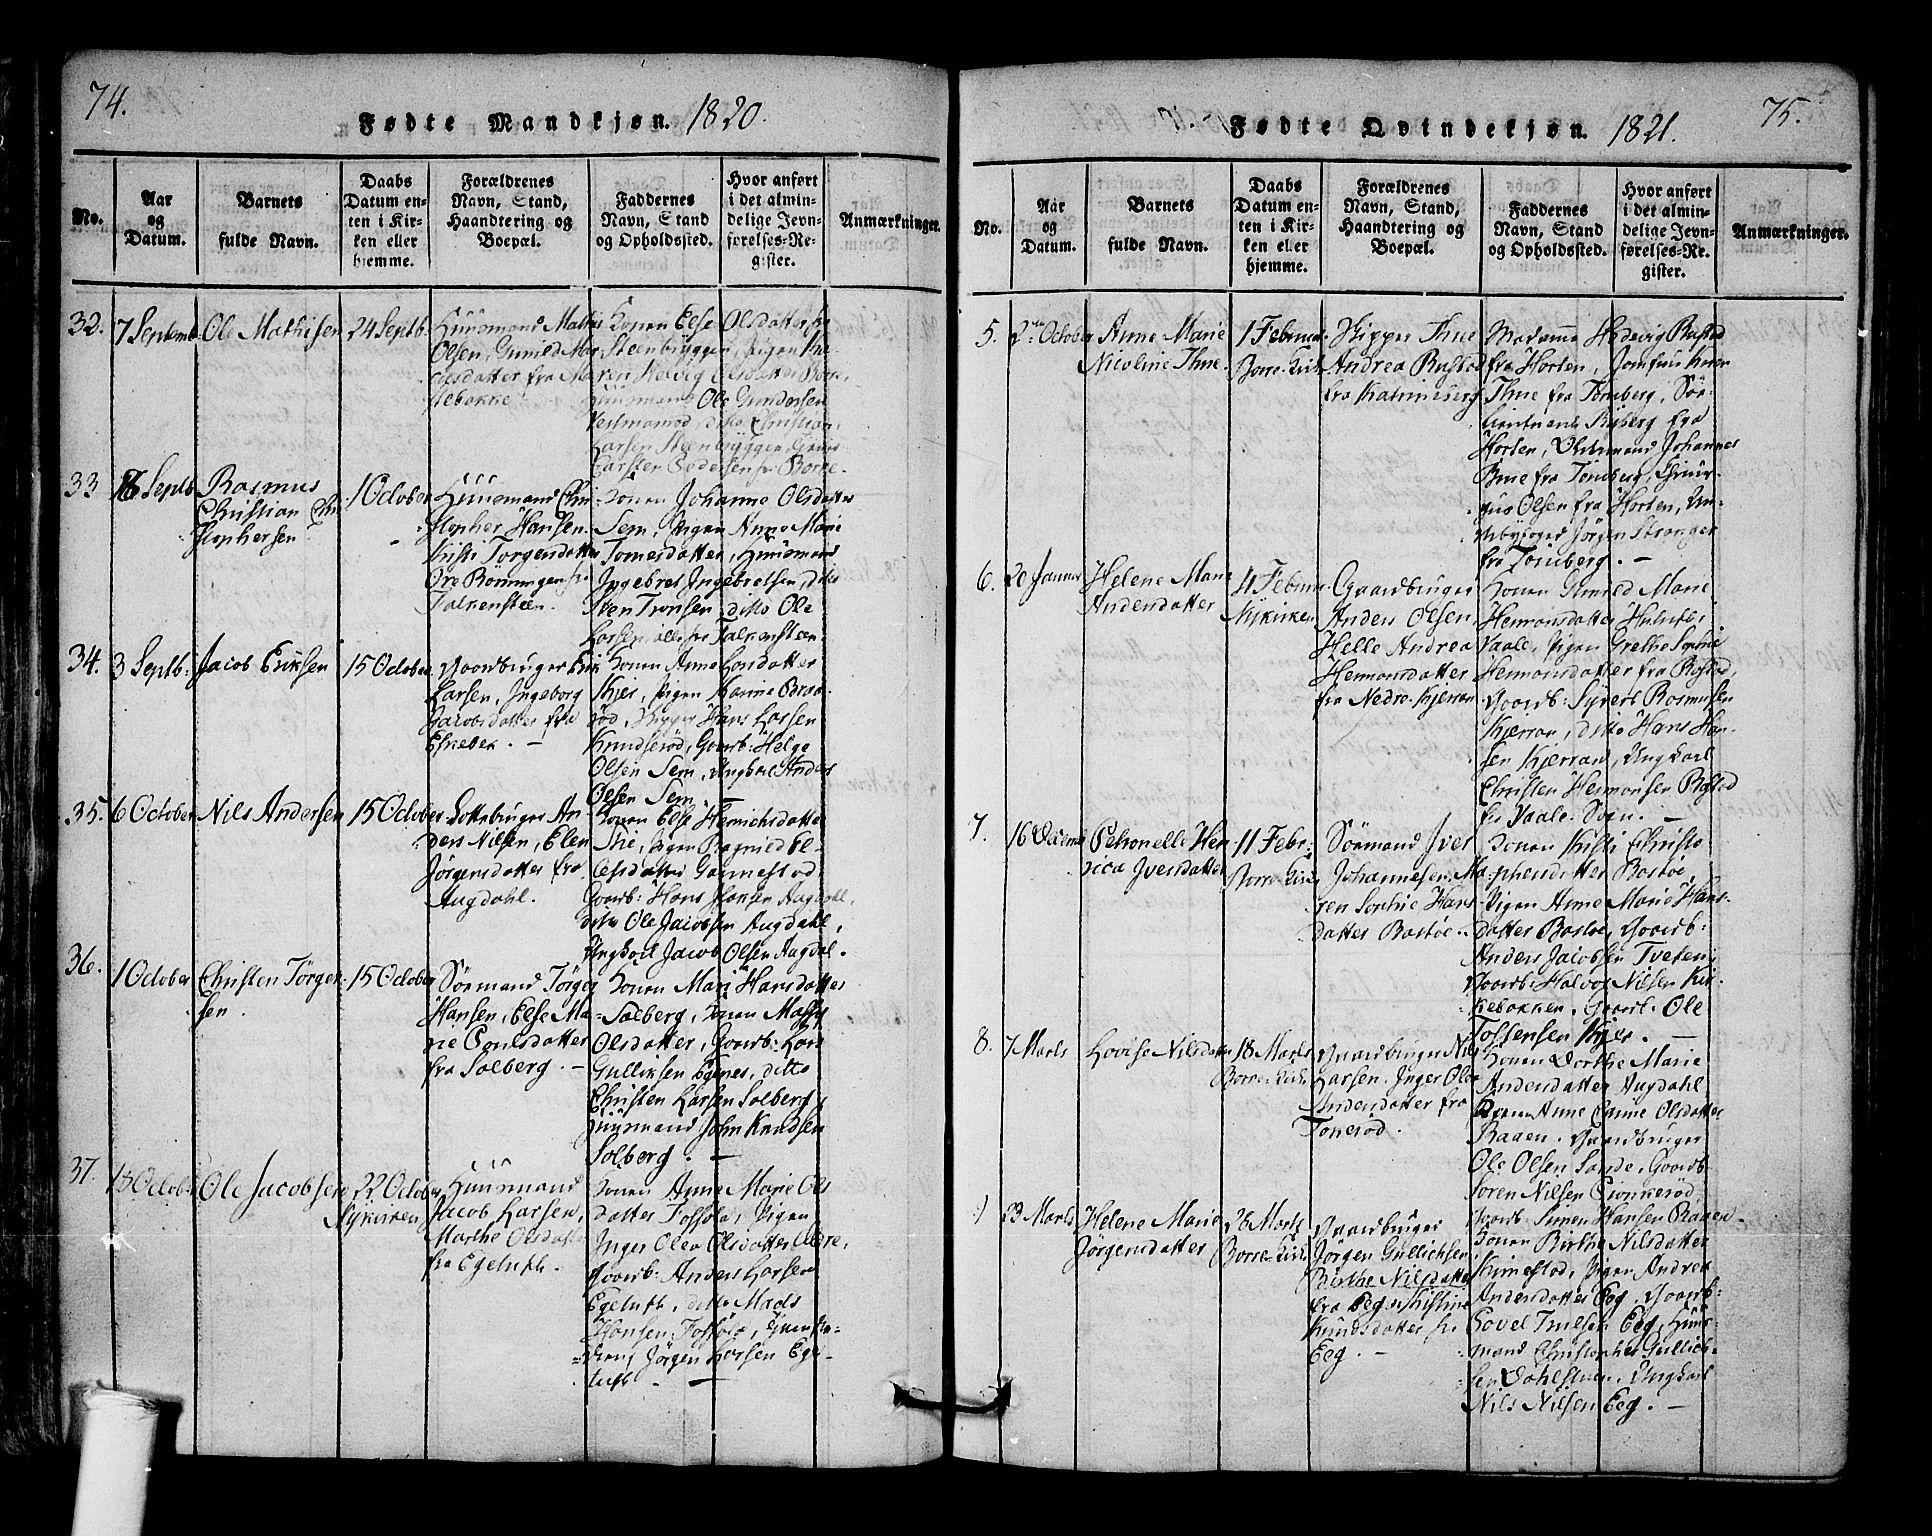 74.
Fødte Mandkjøn. 1820.
No.
Aar
og
Datum.
Barnets
fulde Navn.
Daabs
Datum en-
ten i Kir-
ken eller
hjemme.
Forældrenes
Navn, Stand,
Haandtering og
Boepæl.
Faddernes
Navn, Stand
og Opholdssted.
Hvor anført
i det almin-
delige Jevn-
førelses-Re-
gister.
Anmærkninger.
32.
7 Septemb
Ole Mathisen
24 Septb.
Huusmand Mathis
Olsen, Gunild Mar
fra
stebakke
Konen Else Olsdatter fr
Steenbryggen, Pigen Ka
ren Helvig Olsdatter Borre,
Huusmand Ole Gundersen
ditto Christian
Larsen Steenbryggen
Carsten Pedersen fr Borre.
33
16 Septb
Rasmus
Christian Chri
stophersen
1 October
Huusmand Chri
stopher Hansen
Kisti Torgersdatter
Øre Romningen fra
Falkensteen.
Konen Johanne Olsdatter
Sem, Pigen Anne Marie
Tomesdatter, Huusmand
Ingebret Ingebretsen, ditto
Sven Tronsen, ditto Ole
Larsen, alle fra Falkensteen.
34.
3 Septb:
Jacob Eriksen
15 October
Gaardbruger Erik
Larsen, Ingeborg
Jacobsdatter fra
Eskebek. —
Konen Anne Larsdatter
Kjær, Pigen Karine Braa
rød, Skipper Hans Larsen
Knudserød, Gaarb: Helge
Olsen Sem, Ungkarl Anders
Olsen Sem —
35.
6 October
Nils Andersen
15 October
Lottebruger An
ders Nilsen, Elen
Jörgensdatter fra
Augdahl.
Konen Else Henrichsdatter
Skie, Pigen Ragnild El
lefsdatter Gannestad
Gaarb: Hans Hansen Augdahl,
ditto Ole Jacobsen Augdahl,
Ungkarl Jacob Olsen Augdal.
36.
1 October
Christen Törger
sen.
15 October
Sörmand Törger
Hansen, Else Ma-
rie Poulsdatter
fra Solberg. —
Konen Mari Hansdatter
Solberg, Konen Marthe
Olsdatter, Gaarb: Lars
Gulliksen Egenes, ditto
Christen Larsen Solberg,
Huusmand John Knudsen
Solberg. —
37.
13 October
Ole Jacobsen
22 October
Nykirken
Huusmand
Jacob Larsen,
Marthe Olsdatter
fra Egetuft.
Konen Anne Marie Ols
datter Fossola, Pigen
Inger Olea Olsdatter Oldre,
Gaarb: Anders Larsen
Egetuft, ditto Mads
Hansen Fossola,
dreng Jörgen Larsen Ege-
tuft. —
75.
Fødte Qvindekjøn. 1821.
No.
Aar
og
Datum.
Barnets
fulde Navn.
Daabs
Datum en-
ten i Kir-
ken eller
hjemme.
Forældrenes
Navn, Stand,
Haandtering og
Boepæl.
Faddernes
Navn, Stand
og Opholdssted.
Hvor anført
i det almin-
delige Jevn-
førelses-Re-
gister.
Anmærkninger.
5.
2 October
Anne Marie
Nicoline Thue.
1 Februar
Borre Kirke
Skipper Thue
Andrea Rustad
fra Katrineberg
Madame Hedevig Rustad
fra Horten, Jomfru Karen
Thue fra Tønsberg, Söe-
lieutnant Risberg fra
Horten, Johannes
Bue fra Tønsberg,
Olsen fra Horten, Un-
derbyfoged Jörgen Stranger
fra Tønsberg. —
6.
20 Januar
Helene Marie
Andersdatter
4 Februar
Nykirken
Gaardbruger
Anders Olsen,
Helle Andrea
Hermansdatter
fra Nedre Kjerran
Konen Gunild Marie
Hermansdatter
Vaale, Pigen Grethe Sophie
Hermansdatter fra Rostad,
Gaarb: Syvert Rasmussen
Kjerran, ditto Hans Han-
sen Kjerran, Ungkarl
Christen Hermansen Rostad
fra Vaale Sogn. —
7.
16 Decemb
Petronelle Hen
rica Iversdatter
11 Febr.
Borre Kirke
Sörmand Iver
Johannesen, Ma-
ren Sophie Hans
datter Bastøe.
Konen Kisti Christo
phersdatter Bastøe,
Pigen Anne Marie Hans-
datter Bastøe, Gaarb:
Anders Jacobsen Tveten,
Gaarb: Halvor Nilsen Kir-
kebakken, Gaarb: Ole
Tostensen Kjær. —
8.
7 Marts
Lovise Nilsdatter
18 Marts
Borre Kirke
Gaardbruger Nils
Larsen, Inger Olea
Andersdatter fra
Tokerød.
Konen Dorthe Marie
Andersdatter Augdahl
Konen Anne Cathrine Olsdatter
Raaen. Gaardbruger
Ole Olsen Sande, Gaarb
Søren Nilsen
Gaarb: Simen Hansen Raaen.
9
23 Marts
Helene Marie
Jörgensdatter
28 Marts
Borre Kirke
Gaardbruger
Jörgen Gullichsen
Birthe Nilsdatter
fra Eeg, Kistine
Knudsdatter fra
Eeg. —
Konen Birthe Nilsdatter
Kimestad, Pigen Andrea
Andersdatter Eeg, Gaarb:
Eeg, Huus
mand Christopher Gullich-
sen Dahlstuen, Ungkarl
Nils Nilsen Eeg. —